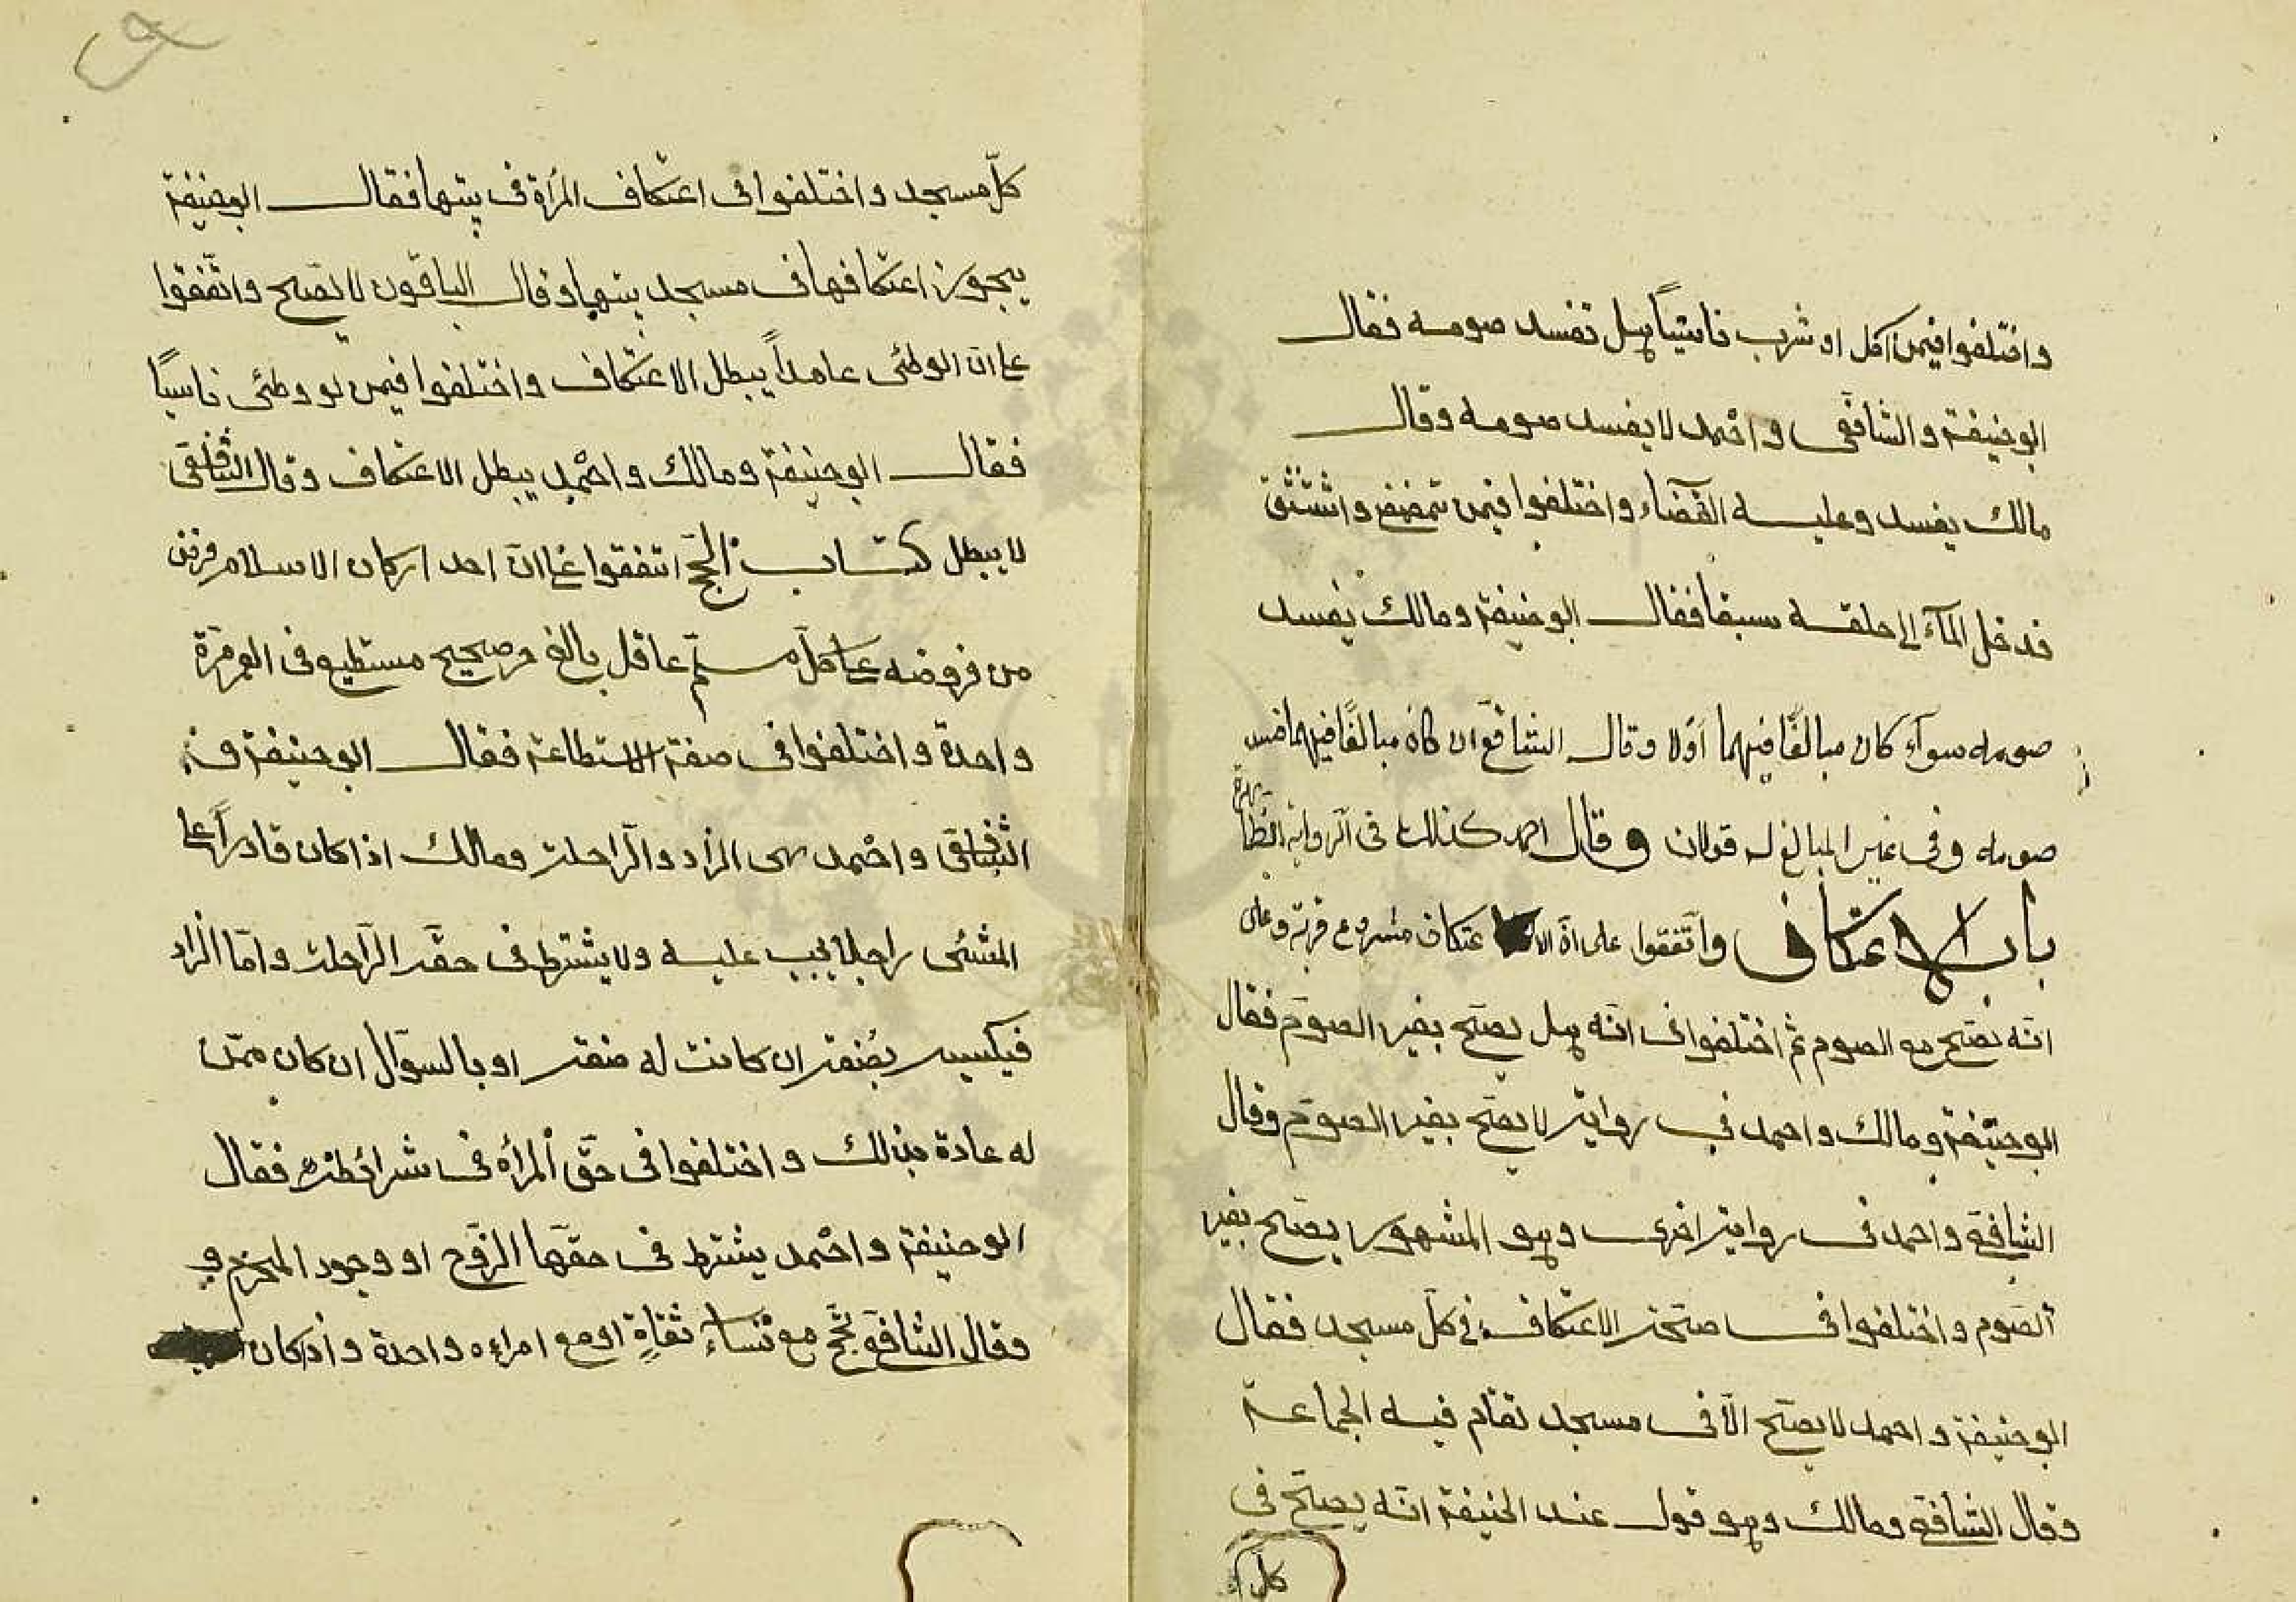 واختلفوا فيمن اكل او شرب ناسيًا هل تفسد صومه فقال
ابوحنيفة والشافعى واحمد لا يفسد صومه وقال
مالك يفسد وعليه القضاء واختلفوا فيمن تمضمض واستنثق
فدخل المآء الى حلقه سبقا فقال ابوحنيفة ومالك يفسد
صومه سوآء كان مبالغًا فيهما اولا وقال الشافعى ان كان مبالغًا فيهما فسد
صومه وفى غير المبالغ له قولان وقال احمد كذلك فى الرواية الظاهرة
باب الاعتكاف واتفقوا على انّ الاعتكاف مشروع قربة وعلى
انّه يصحّ مع الصوم ثم اختلفوا فى انّه هل يصحّ بغير الصوم فقال
ابوحنيفة ومالك واحمد فى رواية لا يصحّ بغير الصوم وقال
الشافعى واحمد فى رواية اخرى وهو المشهور يصحّ بغير
الصّوم واختلفوا فى صحّة الاعتكاف فى كلّ مسجد فقال
ابوحنيفة واحمد لا يصحّ الّا فى مسجد تقام فيه الجماعة
وقال الشافعى ومالك وهو قول عند الحنيفة انّه يصحّ فى
كلّ
كلّ مسجد واختلفوا فى اعتكاف المرأة فى بيتها فقال ابوحنيفة
يجوز اعتكافها فى مسجد بيتها وقال الباقون لا يصحّ واتّفقوا
على انّ الوطئى عامداً يبطل الاعتكاف واختلفوا فيمن لو وطئى ناسيًا
فقال ابوحنيفة ومالك واحمد يبطل الاعتكاف وقال الشافعى
لا يبطل كتاب الحجّ اتفقوا على انّ احد اركان الاسلام وفرض
من فروضه على كلّ مسلم عاقل بالغ حر صحيح مستطيع فى العمر مرّة
واحدة واختلفوا فى صفة الاستطاعة فقال ابوحنيفة و
الشافعى واحمد هى الزاد والرّاحلة ومالك اذا كان قادراً على
المشئى راجلا يجب عليه ولا يشترط فى حقّه الرّاحلة وامّا الزاد
فيكسبه بصنعة ان كانت له صنعة او بالسوّال ان كان ممّن
له عادة بذلك واختلفوا فى حقّ المرأه فى شرائطه فقال
ابوحنيفة واحمد يشترط فى حقّها الزّوج او وجود المحرم و
وقال الشافعى تحجّ مع نساء ثقاةٍ او مع امراءه واحدة واذ كان